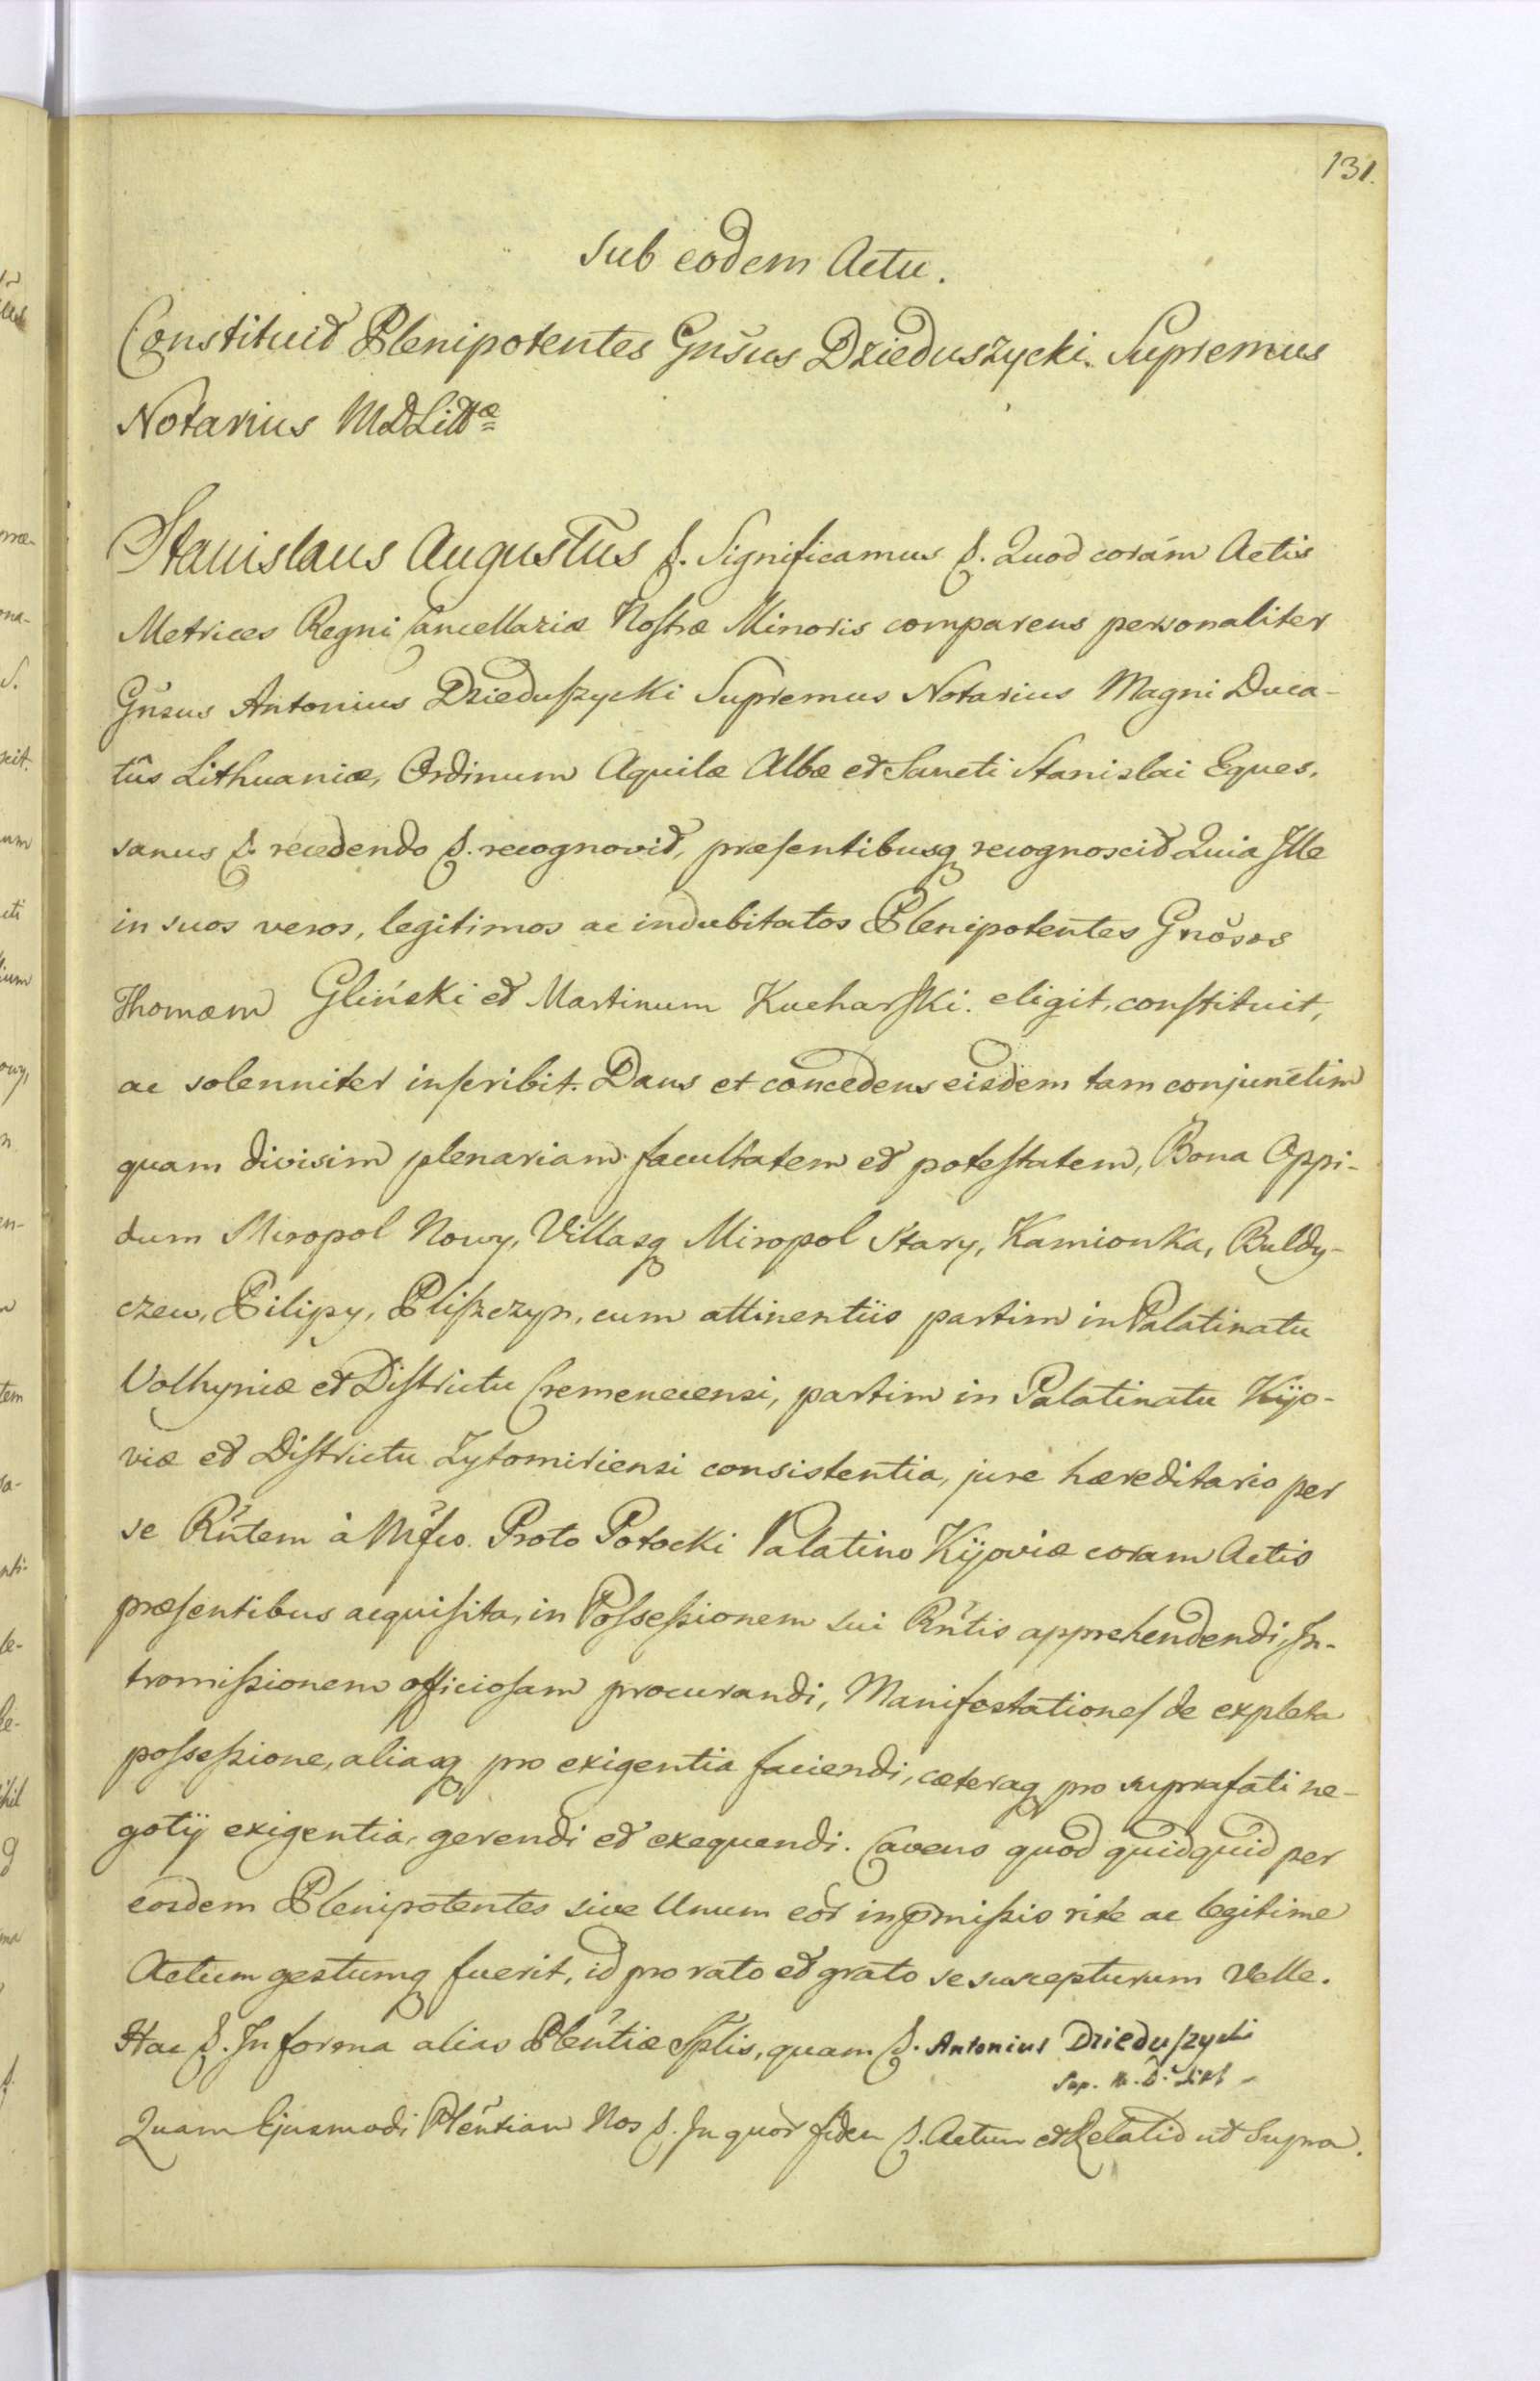 131.
Sub eodem Actu.
Constituit Plenipotentes Gnsus Dzieduszycki Supremus
Notarius MDLittæ
Stanislaus Augustus &. Significamus &. Quod coràm Actis
Metrices Regni Cancellariæ Noſtræ Minoris comparens personaliter
Gnsus Antonius Dzieduſzycki Supremus Notarius Magni Duca-
tûs Lithuaniæ, Ordinum Aquilæ Albæ et Sancti Stanislai Eques,
sanus &. recedendo &. recognovit, præſentibusq recognoscit Quia Ille
in suos veros, legitimos ac indubitatos Plenipotentes Gnosos
Thomam Gliński et Martinum Kucharſki. eligit, conſtituit,
ac solenniter inſcribit. Dans et concedens eisdem tam conjunctim
quam divisim plenariam facultatem et poteſtatem, Bona Oppi-
dum Miropol Nowy, Villasq Miropol Stary, Kamionka, Buldy-
czew, Pilipy, Pliſzczyn, cum attinentiis partim in Palatinatu
Volhyniæ et Diſtrictu Cremenecensi, partim in Palatinatu Kijo-
viæ et Diſtrictu Zytomiriensi consistentia, jure hæreditario per
se Rntem à Mfco. Proto Potocki Palatino Kijoviæ coram Actis
præſentibus acquiſita, in Poſseſsionem sui Rntis apprehendendi, In-
tromiſsionem officioſam procurandi, Manifestationeſ de expleta
poſseſsione, aliasq pro exigentia faciendi, cæteraq pro suprafati ne-
gotij exigentia, gerendi et exequendi. Cavens quod quidquid per
eosdem Plenipotentes sive Unum eor in pmiſsis rite ac legitime
Actum gestumq fuerit, id pro rato et grato se suscepturum Velle.
Hac &. In forma alias Plentiæ Splis, quam &. Antonius Dzieduſzycki
Sup. N. D. Litt
Quam Ejusmodi Plentiam Nos &. In quor fidem &. Actum et Relatio ut Supra.